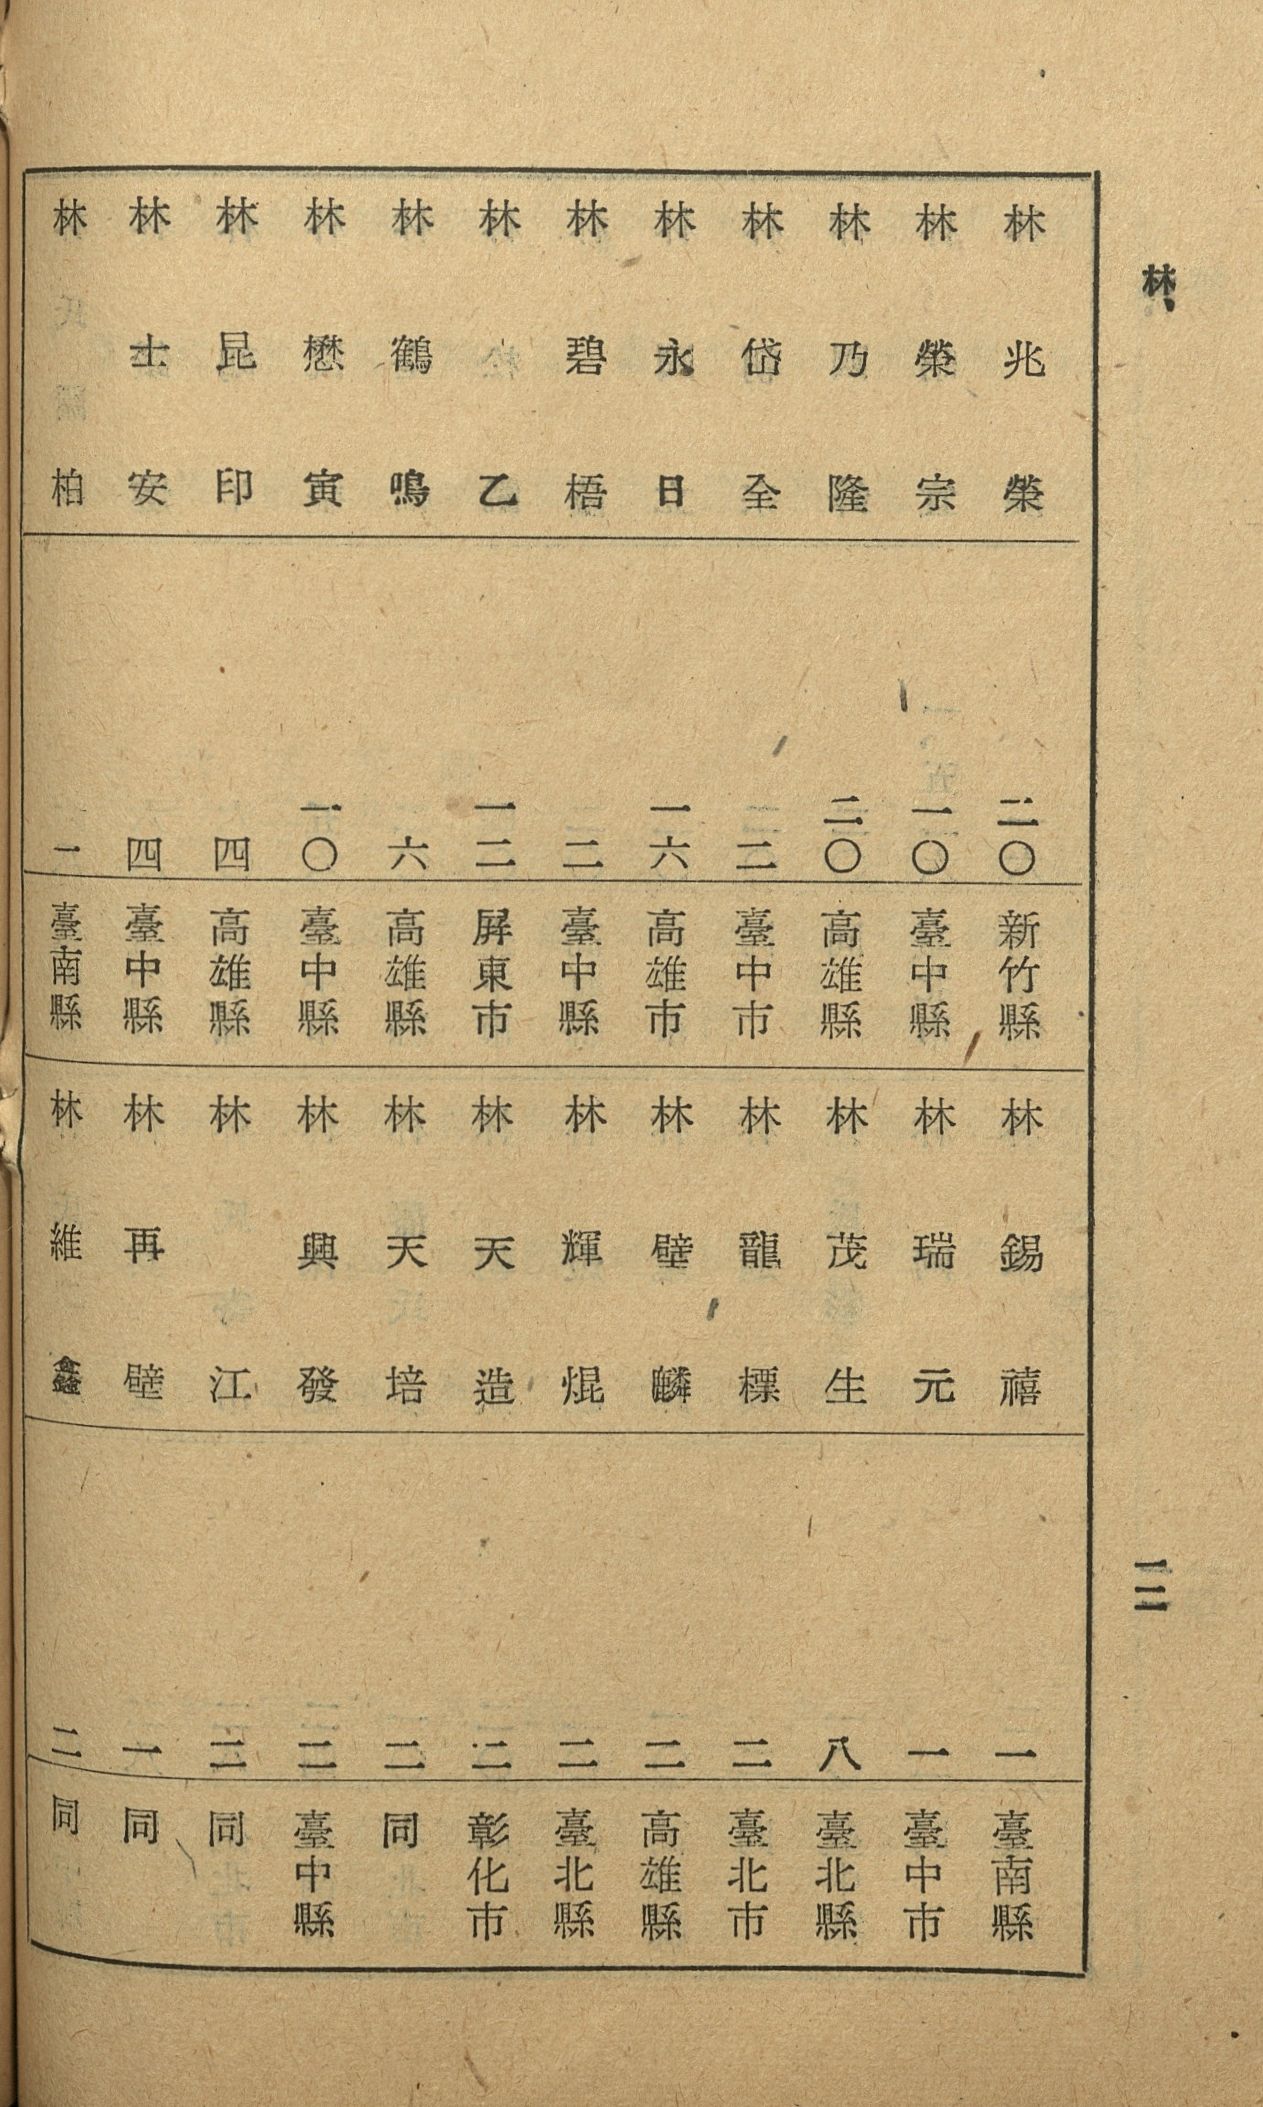 林
林兆榮 二〇 新竹縣
林榮宗 一〇 臺中縣
林乃隆 二〇 高雄縣
林岱全 二 臺中市
林永日 一六 高雄市
林碧梧 二 臺中縣
林乙 一二 屏東市
林鶴鳴 六 高雄縣
林懋寅 一〇 臺中縣
林昆印 四 高雄縣
林士安 四 臺中縣
林柏 一 臺南縣
林錫禧 一 臺南縣
林瑞元 一 臺中市
林茂生 八 臺北縣
林龍標 二 臺北市
林壁麟 二 高雄縣
林輝焜 二 臺北縣
林天造 二 彰化市
林天培 二 同
林興發 二 臺中縣
林江 二 同
林再壁 一 同
林維鑫 二 同
一二